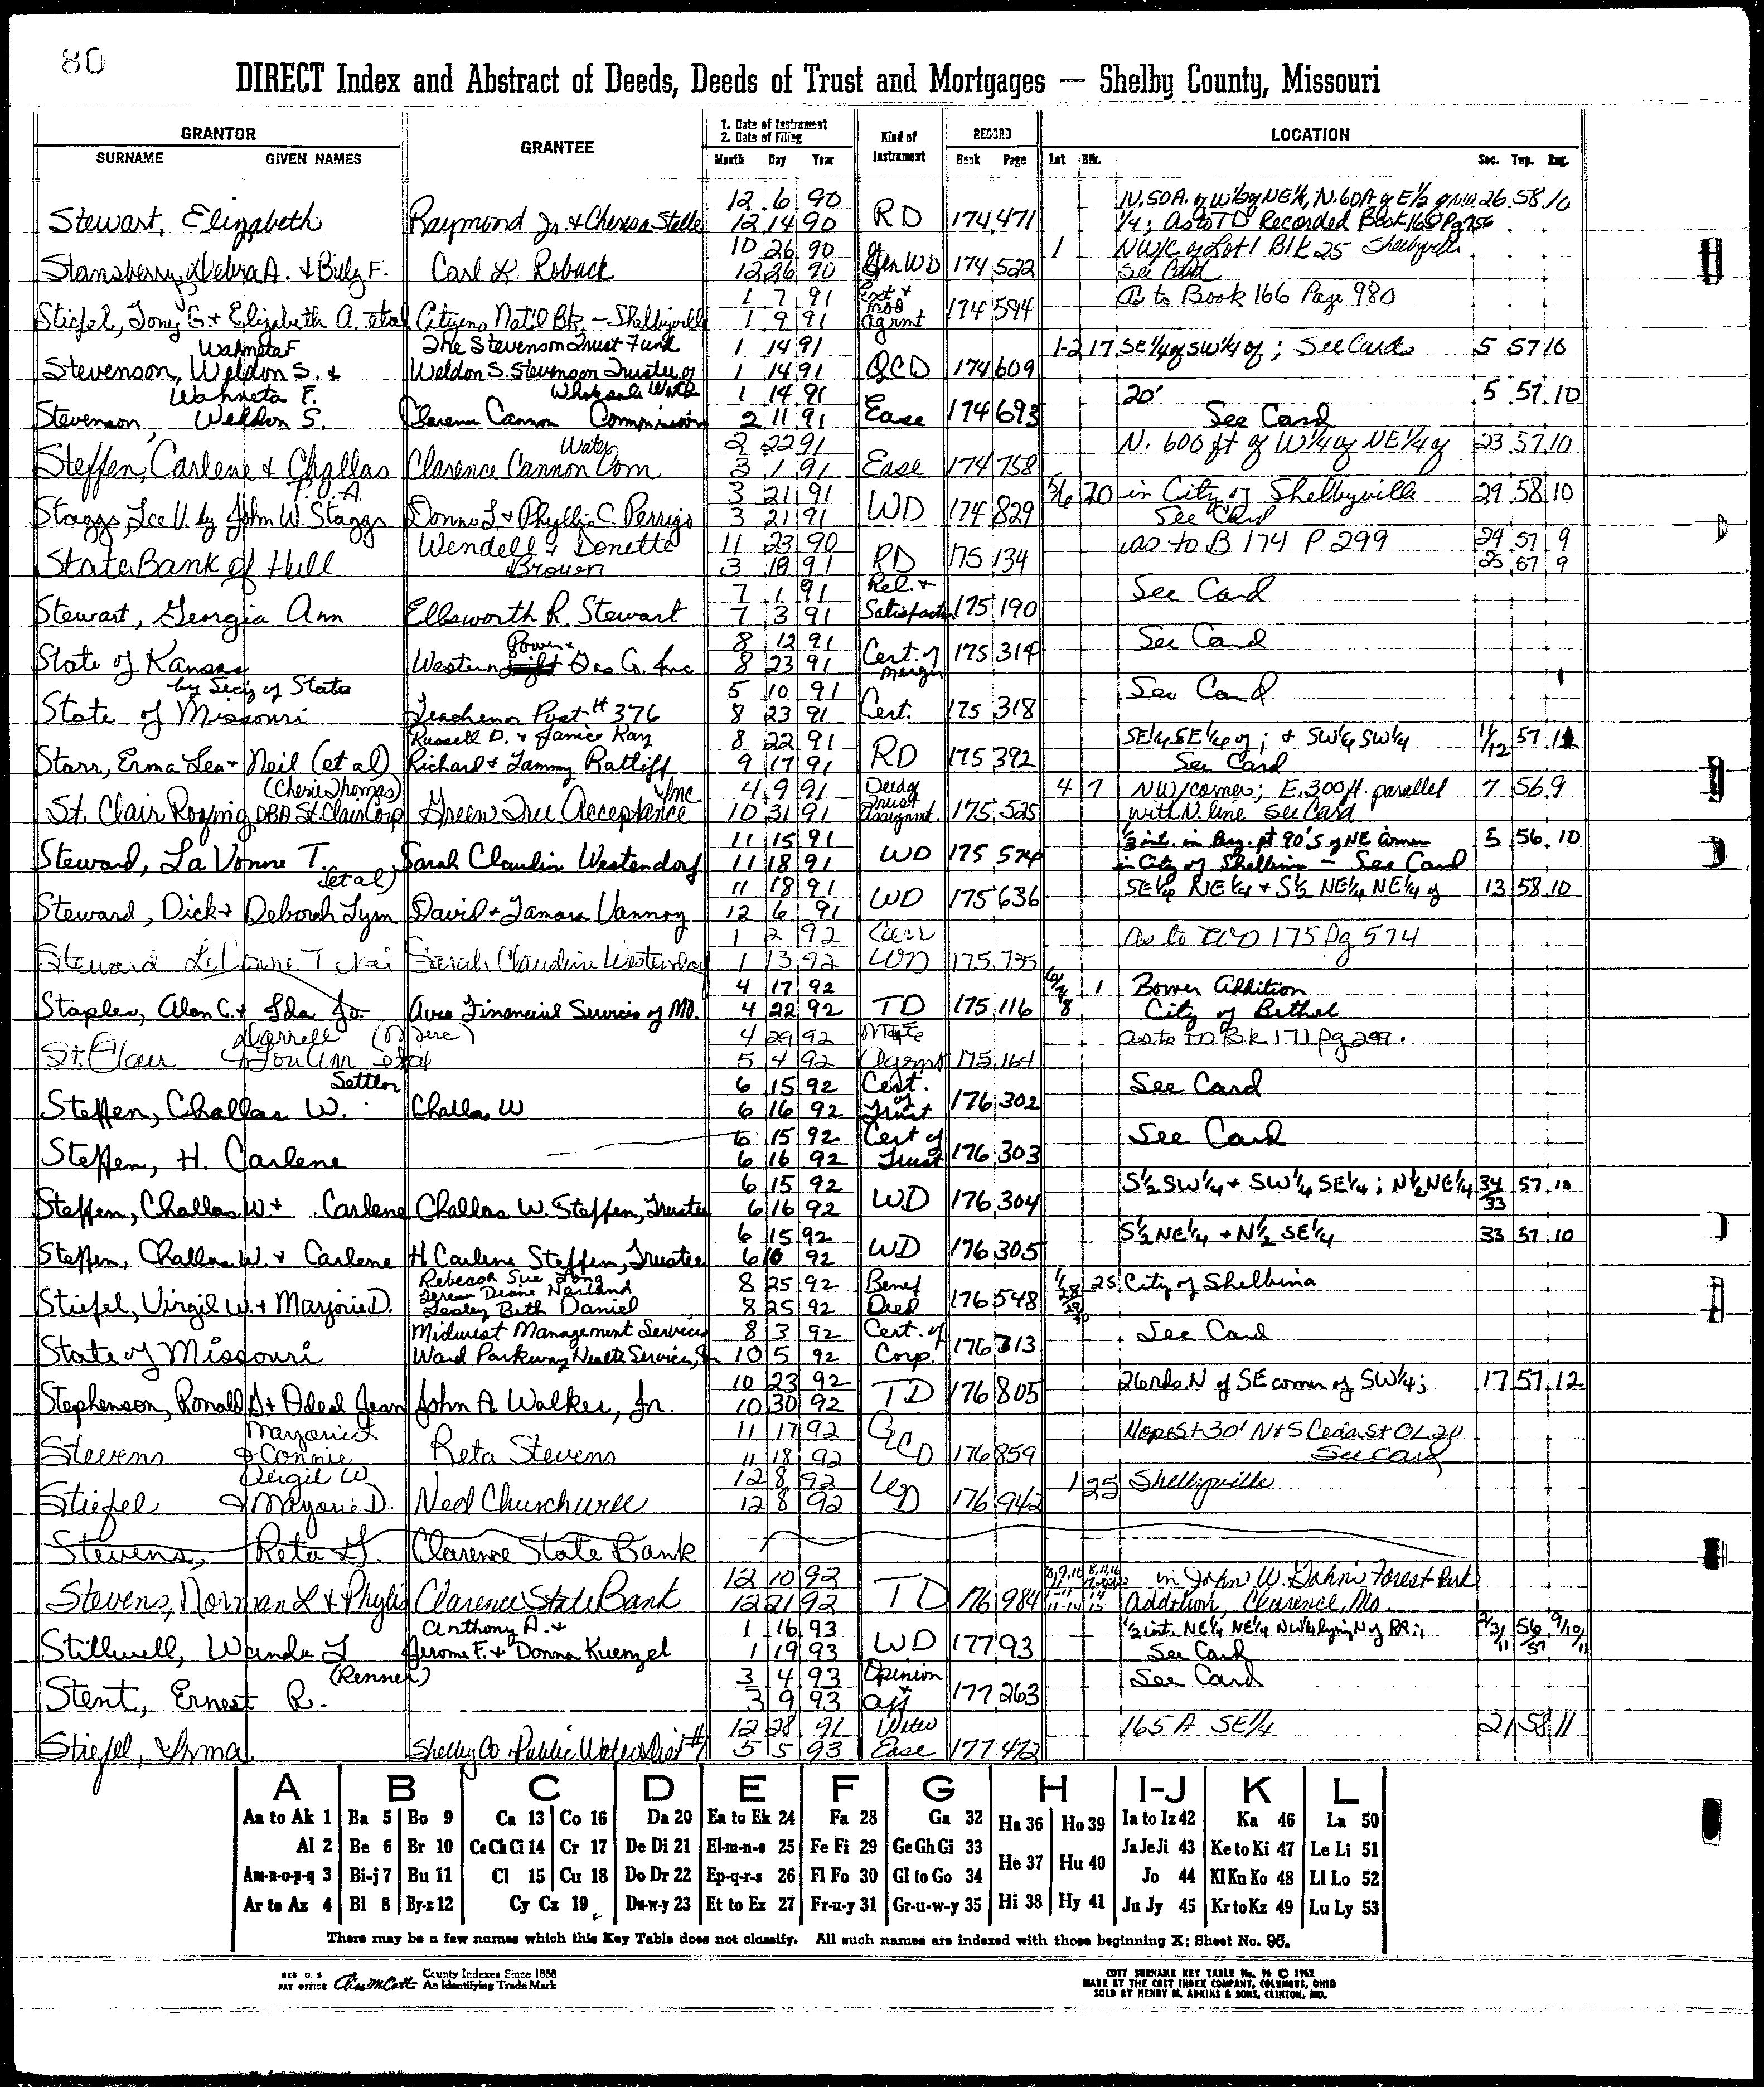 80
DIRECT Index and Abstract of Deeds, Deeds of Trust and Mortgages — Shelby County, Missouri
GRANTOR GRANTEE 1. Date of Instrument 2. Date of Filing Kind of Instrument RECORD LOCATION
SURNAME GIVEN NAMES Month Day Year Book Page Lot Blk. Sec. Twp. Rng.
12 6 90 N. 50A. of W½ of NE¼, N. 60A of E½ of NW 26 58 10
Stewart, Elizabeth Raymond Jr. & Cheresa Stelle 12 14 90 RD 174 471 ¼; As to TD Recorded Book 168 Pg 756
10 26 90 1 NW/C of Lot 1 Blk 25 Shelbyville
Stansberry, Debra A. & Billy F. Carl L Roback 12 26 90 Gen WD 174 522 See Card
1 7 91 Ext & As to Book 166 Page 980
Stiefel, Tony G. & Elizabeth A. etal Citizens Nat'l Bk. - Shelbyville 1 9 91 Mod Agrmt 174 594
Wahneta F The Stevenson Trust Fund 1 14 91 1-2 17 SE¼ of SW¼ of; See Card 5 57 10
Stevenson, Weldon S. & Weldon S. Stevenson Trustee of 1 14 91 QCD 174 609
Wahneta F. Wholesale Water 1 14 91 20' 5 57 10
Stevenson, Weldon S. Clarence Cannon Commission 2 11 91 Ease 174 693 See Card
Water 2 22 91 N. 600 ft of W¼ of NE¼ of 23 57 10
Steffen, Carlene & Challas Clarence Cannon Com 3 1 91 Ease 174 758
P.O.A. 3 21 91 5/6 20 in City of Shelbyville 29 58 10
Staggs, Ice V. by John W. Staggs Donne L. & Phyllis C. Perrigo 3 21 91 WD 174 829 See Card
Wendell & Donette 11 23 90 as to B 174 P 299 24 57 9
State Bank of Hull Brown 3 18 91 RD 175 134 25 57 9
7 1 91 Rel. & See Card
Stewart, Georgia Ann Ellsworth R. Stewart 7 3 91 Satisfaction 175 190
Power & 8 12 91 See Card
State of Kansas Western Gas Co. Inc 8 23 91 Cert. of Merger 175 314
by Sec'y of State 5 10 91 See Card
State of Missouri Teachenor Post # 376 8 23 91 Cert. 175 318
Russell D. & Janice Kay 8 22 91 SE¼ SE¼ of; & SW¼ SW¼ 11/12 57 11
Starr, Erma Lea & Neil (et al) Richard & Tammy Ratliff 9 17 91 RD 175 392 See Card
(Cherie Thomas) Inc. 4 9 91 Deed of 4 7 NW/corner; E. 300 ft. parallel 7 56 9
St. Clair Roofing DBA St. Clair Corp Green Tree Acceptance 10 31 91 Trust Assignmt. 175 525 with N. line See Card
11 15 91 ⅓ int. in Beg. pt 90' S of NE corner 5 56 10
Steward, La Vonne T. (et al) Sarah Claudin Westendorf 11 18 91 WD 175 574 in City of Shelbina - See Card
11 18 91 SE¼ NE¼ & S½ NE¼ NE¼ of 13 58 10
Steward, Dick & Deborah Lynn David & Tamara Vannoy 12 6 91 WD 175 636
1 2 92 Corr as to WD 175 pg 574
Steward LaVonne T etal Sarah Claudine Westendorf 1 13 92 WD 175 735
4 17 92 1 Bower Addition
Staples, Alan C. & Ida Jo Avco Financial Services of MO. 4 22 92 TD 175 116 8 City of Bethel
Darrell 4 29 92 as to TD Bk 171 pg 297.
St. Clair & Lou Ann etal 5 4 92 Agrmt 175 164
Settlor 6 15 92 Cert. See Card
Steffen, Challas W. Challas W 6 16 92 of Trust 176 302
6 15 92 Cert of See Card
Steffen, H. Carlene 6 16 92 Trust 176 303
6 15 92 S½ SW¼ & SW¼ SE¼; N½ NE¼ 34/33 57 10
Steffen, Challas W. & Carlene Challas W. Steffen, Trustee 6 16 92 WD 176 304
6 15 92 S½ NE¼ & N½ SE¼ 33 57 10
Steffen, Challas W. & Carlene H. Carlene Steffen, Trustee 6 16 92 WD 176 305
Rebecca Sue Long
Teresa Diane Norland 8 25 92 Benef 25 City of Shelbina
Stiefel, Virgil W. & Marjorie D. Lesley Beth Daniel 8 25 92 Deed 176 548
Midwest Management Services 8 3 92 Cert. of See Card
State of Missouri Ward Parkway Health Services, In 10 5 92 Corp. 176 713
10 23 92 26 rds. N of SE corner of SW¼; 17 57 12
Stephenson, Ronald D & Odeal Jean John A Walker, Jr. 10 30 92 TD 176 805
Marjorie L 11 17 92 Hope St 30' N & S Cedar St OL 20
Stevens & Connie Reta Stevens 11 18 92 QCD 176 859 See Card
Virgil W 12 8 92 1 25 Shelbyville
Stiefel & Marjorie D. Ned Churchwell 12 8 92 WD 176 942
Stevens, Reta Clarence State Bank
12 10 92 in John W. Dahn's Forest Park
Stevens, Norman L & Phylis Clarence State Bank 12 21 92 TD 176 984 Addition, Clarence, Mo.
Anthony A. & 1 16 93 ½ int. NE¼ NE¼ NW¼ lying N of RR; 2/3/11 56/57 9/10/11
Stillwell, Wanda L Jerome F. & Donna Kuenzel 1 19 93 WD 177 93 See Card
(Renner) 3 4 93 Opinion See Card
Stent, Ernest R. 3 9 93 & Aff 177 263
12 28 91 Water 165 A SE¼ 21 58 11
Stiefel, Irma Shelby Co. Public Water Dist #1 5 5 93 Ease 177 472
A B C D E F G H I-J K L
Aa to Ak 1 Ba 5 Bo 9 Ca 13 Co 16 Da 20 Ea to Ek 24 Fa 28 Ga 32 Ha 36 Ho 39 Ia to Iz 42 Ka 46 La 50
Al 2 Be 6 Br 10 Ce Ch Ci 14 Cr 17 De Di 21 El-m-n-o 25 Fe Fi 29 Ge Gh Gi 33 He 37 Hu 40 Ja Je Ji 43 Ke to Ki 47 Le Li 51
Am-n-o-p-q 3 Bi-j 7 Bu 11 Cl 15 Cu 18 Do Dr 22 Ep-q-r-s 26 Fl Fo 30 Gl to Go 34 Jo 44 Kl Kn Ko 48 Ll Lo 52
Ar to Az 4 Bl 8 By-z 12 Cy Cz 19 Du-w-y 23 Et to Ez 27 Fr-u-y 31 Gr-u-w-y 35 Hi 38 Hy 41 Ju Jy 45 Kr to Kz 49 Lu Ly 53
There may be a few names which this Key Table does not classify. All such names are indexed with those beginning X; Sheet No. 95.
REG U S PAT OFFICE County Indexes Since 1888 An Identifying Trade Mark
COTT SURNAME KEY TABLE No. 96 © 1962
MADE BY THE COTT INDEX COMPANY, COLUMBUS, OHIO
SOLD BY HENRY M. ADKINS & SONS, CLINTON, MO.